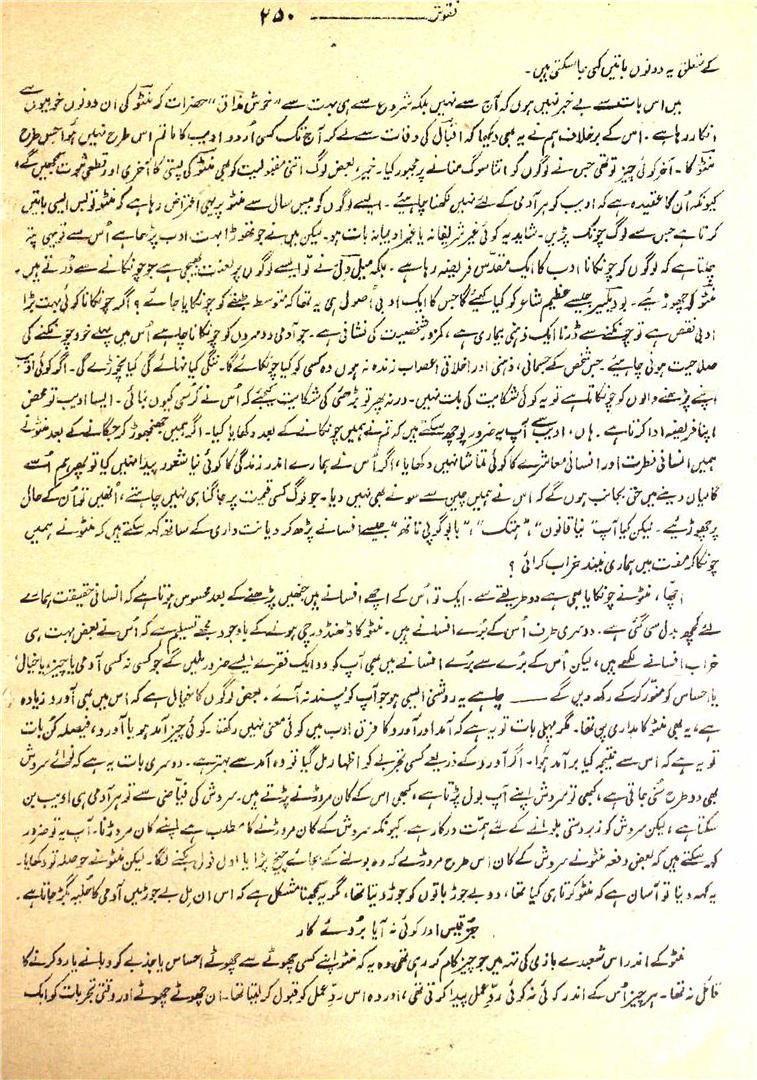 نقوش ــــــــــــــــ ۲۵۰
کے متعلق یہ دونوں باتیں کہی جا سکتی ہیں۔
میں اس بات سے بے خبر نہیں ہوں کہ آج سے نہیں بلکہ شروع سے ہی بہت سے "خوش مذاق" حضرات کو منٹو کی ان دونوں خوبیوں سے
انکار رہا ہے۔ اس کے برخلاف ہم نے یہ بھی دیکھا کہ اقبال کی وفات سے لے کر آج تک کسی اُردو ادیب کا ماتم اس طرح نہیں ہوا جس طرح
منٹو کا۔ آخر کوئی چیز تو تھی جس نے لوگوں کو اتنا سوگ منانے پر مجبور کیا۔ خیر، بعض لوگ اتنی مقبولیت کو بھی منٹو کی پستی کا آخری اور قطعی ثبوت سمجھیں گے،
کیونکہ اُن کا عقیدہ ہے کہ ادیب کو ہر آدمی کے لئے نہیں لکھنا چاہیئے۔ ایسے لوگوں کو بیس سال سے منٹو پر یہی اعتراض رہا ہے کہ منٹو تو بس ایسی باتیں
کرتا ہے جس سے لوگ چونک پڑیں۔ شاید یہ کوئی غیر شریفانہ یا غیر ادیبانہ بات ہو۔ لیکن میں نے جو تھوڑا بہت ادب پڑھا ہے اُس سے تو یہی پتہ
چلتا ہے کہ لوگوں کو چونکانا ادب کا ایک مقدس فریضہ رہا ہے۔ بلکہ میل ول نے تو ایسے لوگوں پر لعنت بھیجی ہے جو چونکانے سے ڈرتے ہیں۔
منٹو کو چھوڑیئے۔ بودلیر جیسے عظیم شاعر کو کیا کہئے گا جس کا ایک ادبی اُصول ہی یہ تھا کہ متوسط طبقے کو چونکایا جائے؟ اگر چونکانا کوئی بہت بڑا
ادبی نقص ہے تو چونکنے سے ڈرنا ایک ذہنی بیماری ہے، کمزور شخصیت کی نشانی ہے۔ جو آدمی دوسروں کو چونکانا چاہے اُس میں پہلے خود چونکنے کی
صلاحیت ہونی چاہیئے۔ جس شخص کے جسمانی، ذہنی اور اخلاقی اعصاب زندہ نہ ہوں وہ کسی کو کیا چونکائے گا۔ ننگی کیا نہائے گی کیا نچوڑے گی۔ اگر کوئی ادیب
اپنے پڑھنے والوں کو چونکاتا ہے تو یہ کوئی شکایت کی بات نہیں۔ ورنہ پھر تو بڑھئی کی شکایت کیجئے کہ اُس نے کرسی کیوں بنائی۔ ایسا ادیب تو محض
اپنا فریضہ ادا کرتا ہے۔ ہاں، ادیب سے آپ یہ ضرور پوچھ سکتے ہیں کہ تم نے ہمیں چونکانے کے بعد دکھایا کیا۔ اگر ہمیں جھنجھوڑ کر جگانے کے بعد منٹو نے
ہمیں انسانی فطرت اور انسانی معاشرے کا کوئی تماشا نہیں دکھایا، اگر اُس نے ہمارے اندر زندگی کا کوئی نیا شعور پیدا نہیں کیا تو پھر ہم اُسے
گالیاں دینے میں حق بجانب ہوں گے کہ اس نے ہمیں چین سے سونے بھی نہیں دیا۔ جو لوگ کسی قیمت پر جاگنا ہی نہیں چاہتے، اُنھیں تو اُن کے حال
پر چھوڑیئے۔ لیکن کیا آپ "نیا قانون"، "ہتک"، "بابو گوپی ناتھ" جیسے افسانے پڑھ کر دیانت داری کے ساتھ کہہ سکتے ہیں کہ منٹو نے ہمیں
چونکا کر مفت میں ہماری نیند خراب کرائی؟
اچھا، منٹو نے چونکایا بھی ہے دو طریقے سے۔ ایک تو اُس کے اچھے افسانے ہیں جنھیں پڑھنے کے بعد محسوس ہوتا ہے کہ انسانی حقیقت ہمارے
لئے کچھ بدل سی گئی ہے۔ دوسری طرف اُس کے بُرے افسانے ہیں۔ منٹو کا ڈھنڈورچی ہونے کے باوجود مجھے تسلیم ہے کہ اُس نے بعض بہت ہی
خراب افسانے لکھے ہیں، لیکن اُس کے بُرے سے بُرے افسانے میں بھی آپ کو دو ایک فقرے ایسے ضرور ملیں گے جو کسی نہ کسی آدمی یا چیز، یا خیال
یا احساس کو منور کر کے رکھ دیں گے ـــــــ چاہے یہ روشنی ایسی ہو جو آپ کو پسند نہ آئے۔ بعض لوگوں کا خیال ہے کہ اس میں بھی آورد زیادہ
ہے، یہ بھی منٹو کا مداری پن تھا۔ مگر پہلی بات تو یہ ہے کہ آمد اور آورد کا فرق ادب میں کوئی معنی نہیں رکھتا۔ کوئی چیز آمد ہو یا آورد، فیصلہ کن بات
تو یہ ہے کہ اس سے نتیجہ کیا برآمد ہوا۔ اگر آورد کے ذریعے کسی تجربے کو اظہار مل گیا تو وہ آمد سے بہتر ہے۔ دوسری بات یہ ہے کہ نوائے سروش
بھی دو طرح سُنی جاتی ہے، کبھی تو سروش اپنے آپ بول پڑتا ہے، کبھی اس کے کان مروڑنے پڑتے ہیں۔ سروش کی فیاضی سے تو ہر آدمی ہی ادیب بن
سکتا ہے، لیکن سروش کو زبردستی بلوانے کے لئے ہمت درکار ہے۔ کیونکہ سروش کے کان مروڑنے کا مطلب ہے اپنے کان مروڑنا۔ آپ یہ تو ضرور
کہہ سکتے ہیں کہ بعض دفعہ منٹو نے سروش کے کان اس طرح مروڑے کہ وہ بولنے کے بجائے چیخ پڑا یا اول فول بکنے لگا۔ لیکن منٹو نے حوصلہ تو دکھایا۔
یہ کہہ دینا تو آسان ہے کہ منٹو کرتا ہی کیا تھا، دو بے جوڑ باتوں کو جوڑ دیتا تھا، مگر یہ سمجھنا مشکل ہے کہ اس ان مل بے جوڑ میں آدمی کا حلیہ بگڑ جاتا ہے۔
جز قیس اور کوئی نہ آیا بروئے کار
منٹو کے اندر اس شعبدے بازی کی تہہ میں جو چیز کام کر رہی تھی وہ یہ کہ منٹو اپنے کسی چھوٹے سے چھوٹے احساس یا جذبے کو دبانے یا رد کرنے کا
قائل نہ تھا۔ ہر چیز اُس کے اندر کوئی نہ کوئی ردِّ عمل پیدا کرتی تھی، اور وہ اس ردِّ عمل کو قبول کر لیتا تھا۔ ان چھوٹے چھوٹے اور وقتی تجربات کو ایک